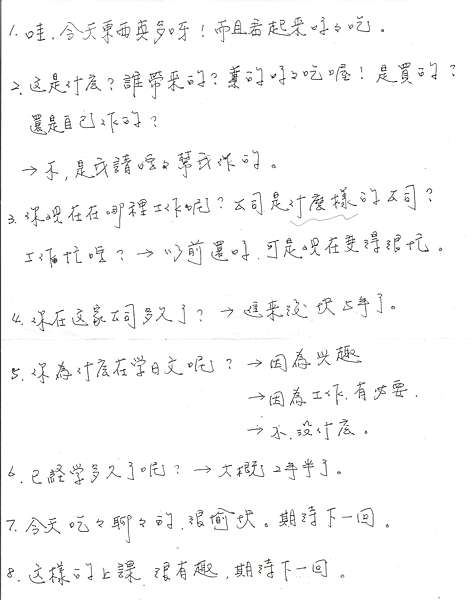 1. 哇,今天東西真多呀!而且看起来好好吃。
2. 这是什広?誰帶来的?真的好好吃喔!是買的?
還是自己作的?
→不,是我請 幫我作的。
3. 你現在在哪裡工作呢?公司是什麼樣的公司?
工作忙嗎?→以前還好,可是現在変得很忙。
4. 你在这家公司多久了?→進来後快5年了。
5. 你為什広在学日文呢?→因為兴趣
→因為工作,有必要.
→不,沒什広。
6. 已経学多久了呢?→大概2年半了。
7. 今天吃吃聊聊的,很愉快。期待下一回。
8. 这樣的上課,很有趣,期待下一回。